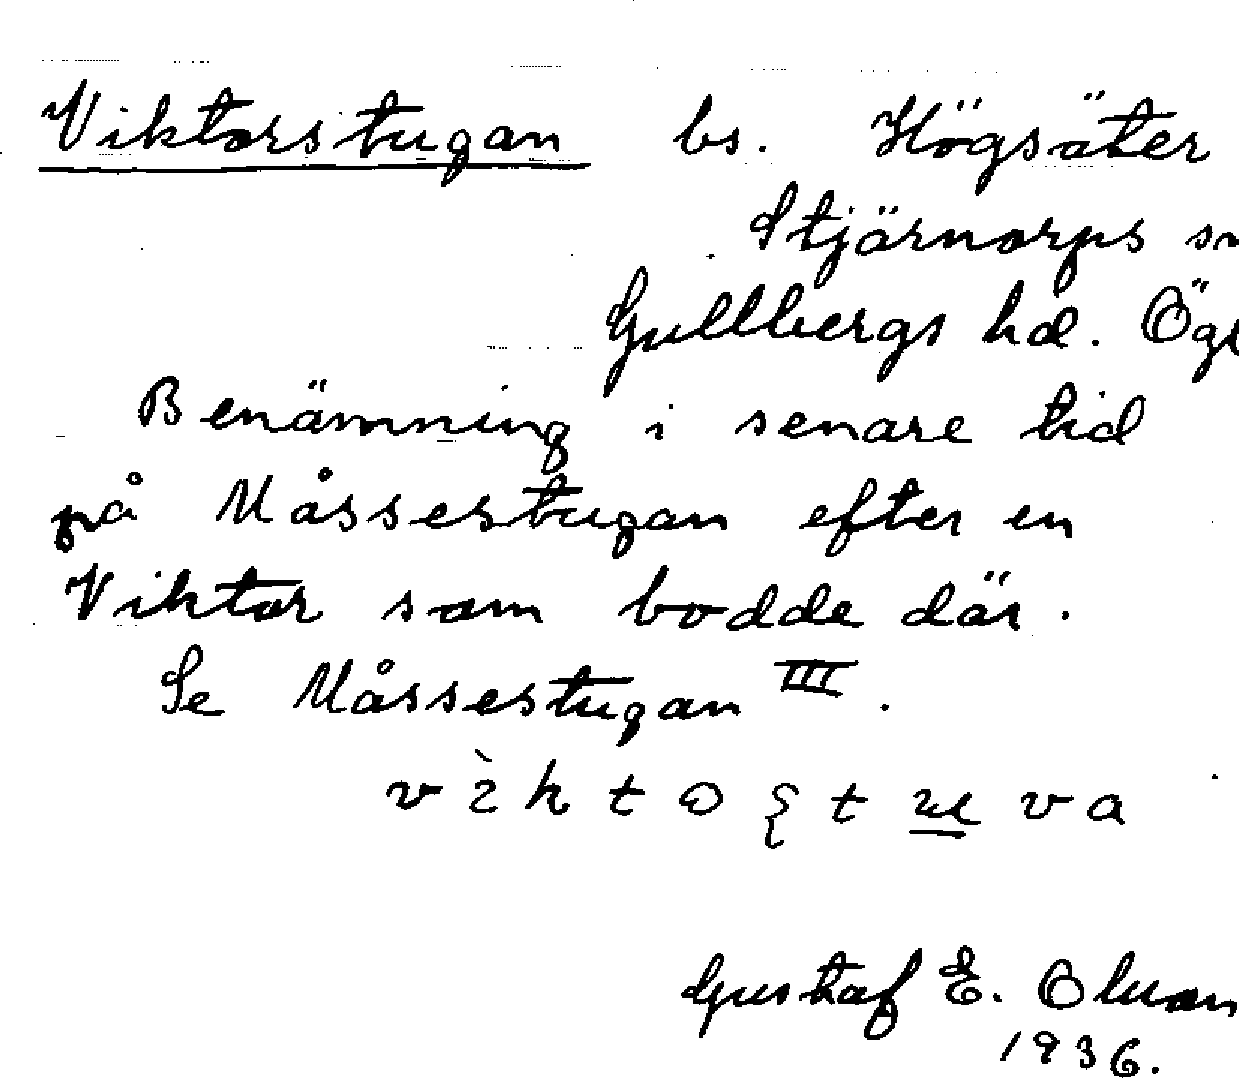 Viktorstugan bs. Högsäter
Stjärnorps sn
Gullbergs hd. Ögl
Benämning i senare tid
på Måssestugan efter en
Viktor som bodde där.
Se Måssestugan III.
Gustaf E. Olsson
1936.